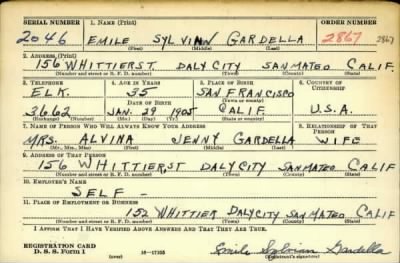 SERIAL NUMBER 1. NAME (Print) ORDER NUMBER
2046 EMILE SYLVINN GARDELLA 2867 2867
(First) (Middle) (Last)
2. ADDRESS (Print)
156 WHITTIER ST. DALY CITY SAN MATEO CALIF.
(Number and street or R. F. D. number) (Town) (County) (State)
3. TELEPHONE 4. AGE IN YEARS 5. PLACE OF BIRTH 6. COUNTRY OF
ELK. 35 SAN FRANCISCO CITIZENSHIP
DATE OF BIRTH (Town or county)
3662 JAN. 29 1905 CALIF. U.S.A.
(Exchange) (Number) (Mo.) (Day) (Yr.) (State or country)
7. NAME OF PERSON WHO WILL ALWAYS KNOW YOUR ADDRESS 8. RELATIONSHIP OF THAT PERSON
MRS. ALVINA JENNY GARDELLA WIFE
(Mr., Mrs., Miss) (First) (Middle) (Last)
9. ADDRESS OF THAT PERSON
156 WHITTIER, ST DALY CITY SAN MATEO CALIF
(Number and street or R. F. D. number) (Town) (County) (State)
10. EMPLOYER'S NAME
SELF -
11. PLACE OF EMPLOYMENT OR BUSINESS
152 WHITTIER DALY CITY SAN MATEO CALIF
(Number and street or R. F. D. number) (Town) (County) (State)
I AFFIRM THAT I HAVE VERIFIED ABOVE ANSWERS AND THAT THEY ARE TRUE.
REGISTRATION CARD
D. S. S. Form 1 (over) 16-17105 Emile Sylvinn Gardella
(Registrant's signature)